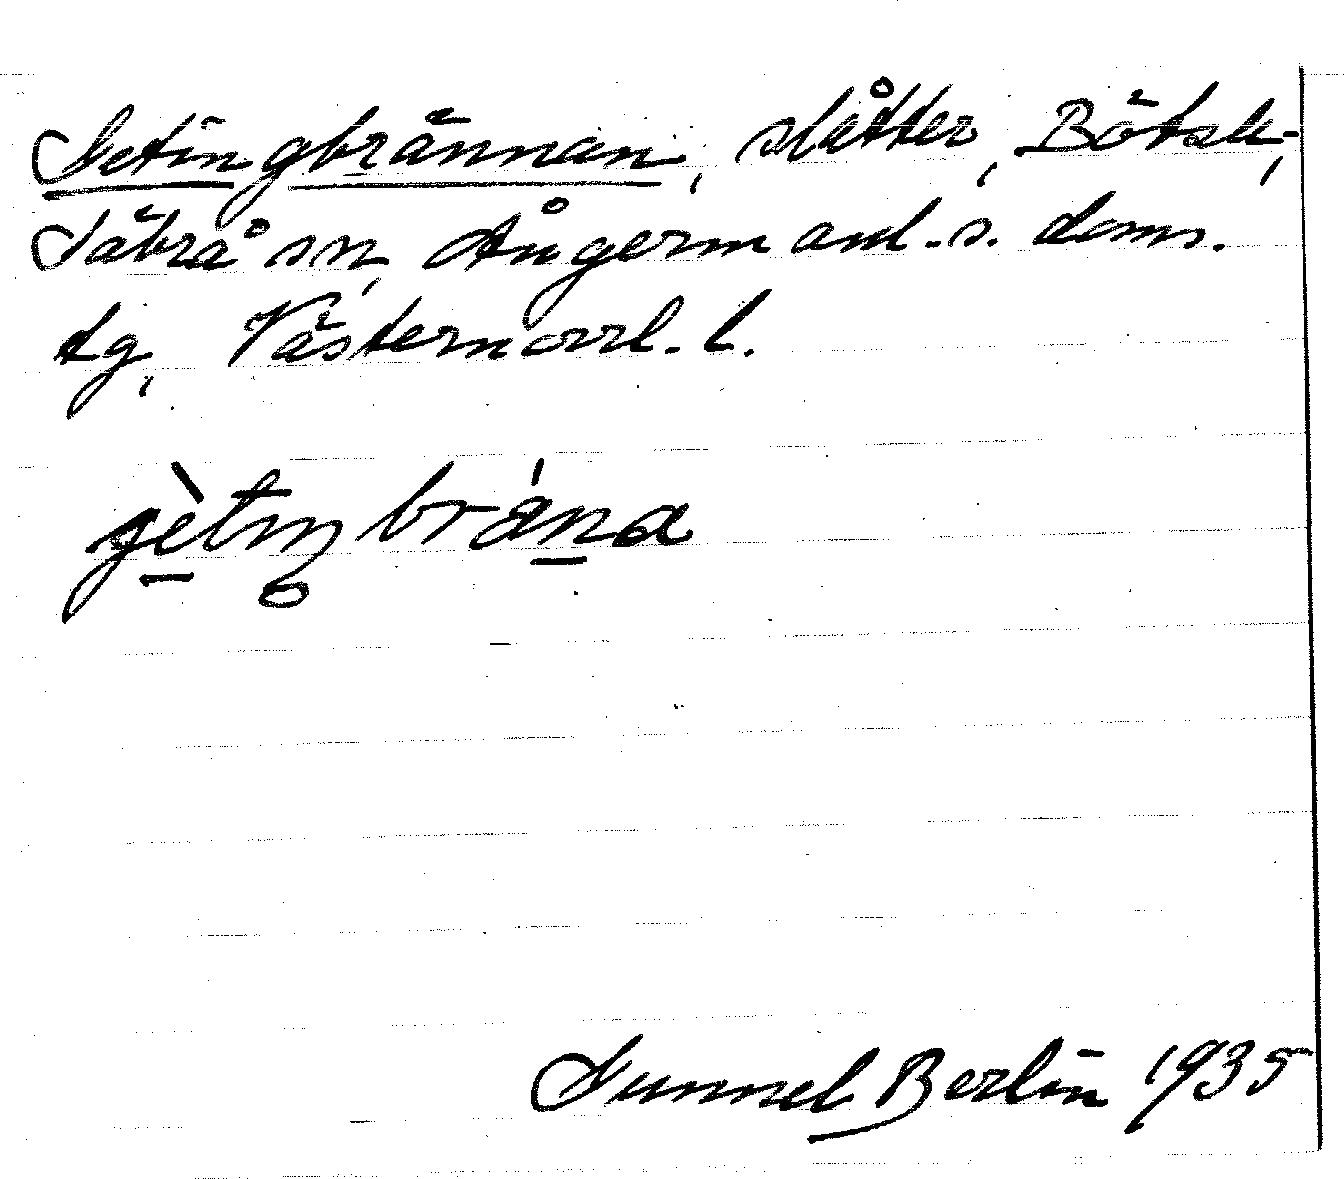 Getingbrännan, slåtter, Bötsle,
Säbrå sn, Ångermanl.s. doms.
tg, Västernorrl. l.
jètiŋ brána
Gunnel Berlin 1935